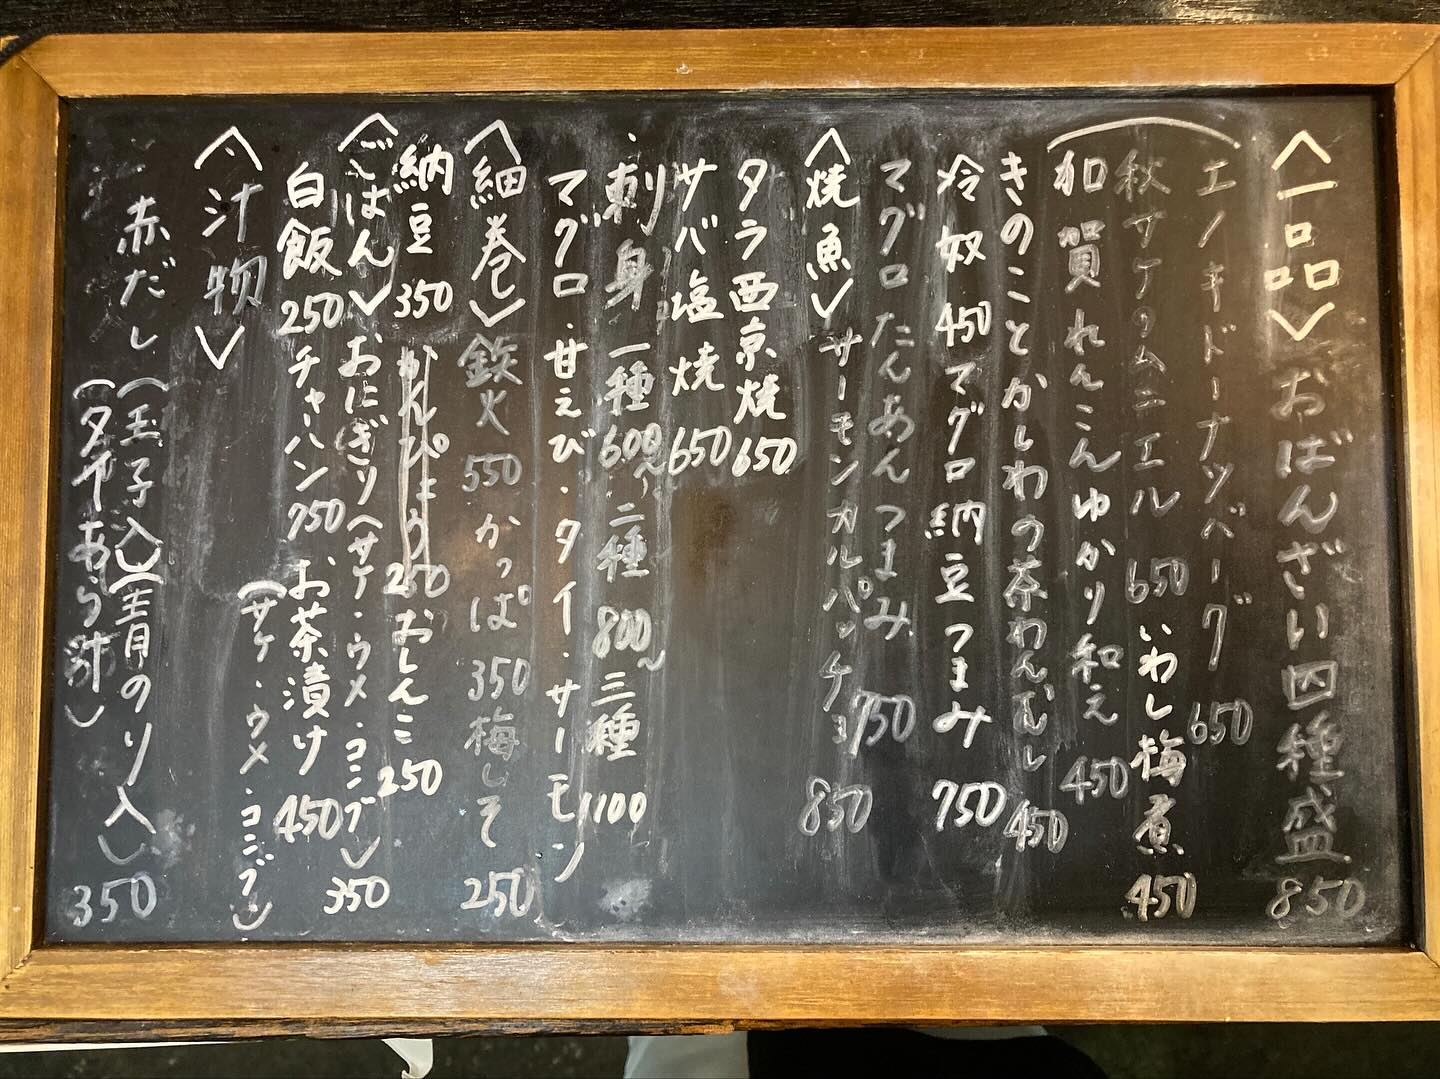 〈一品〉おばんざい四種盛 850
エノキドーナツバーグ 650
秋サケのムニエル 650 いわし梅煮 450
加賀れんこんゆかり和え 450
きのことかしわの茶わんむし 450
冷奴 450 マグロ納豆つまみ 750
マグロ つまみ 750
サーモンカルパッチョ 850
〈焼魚〉
タラ西京焼 650
サバ塩焼 650
・刺身 一種 600〜 二種 800〜 三種 1100
マグロ・甘えび・タイ・サーモン
〈細巻〉鉄火 550 かっぱ 350 梅しそ 250
納豆 350 かんぴょう 250 おしんこ 250
〈ごはん〉おにぎり(サケ・ウメ・コンブ) 350
白飯 250 チャーハン 750 お茶漬け 450
(サケ・ウメ・コンブ)
〈汁物〉
赤だし (玉子入)(青のり入) 350
(あら汁)